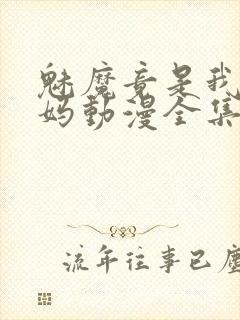 魅魔竟是我
妈動漫全集
流年往事已塵